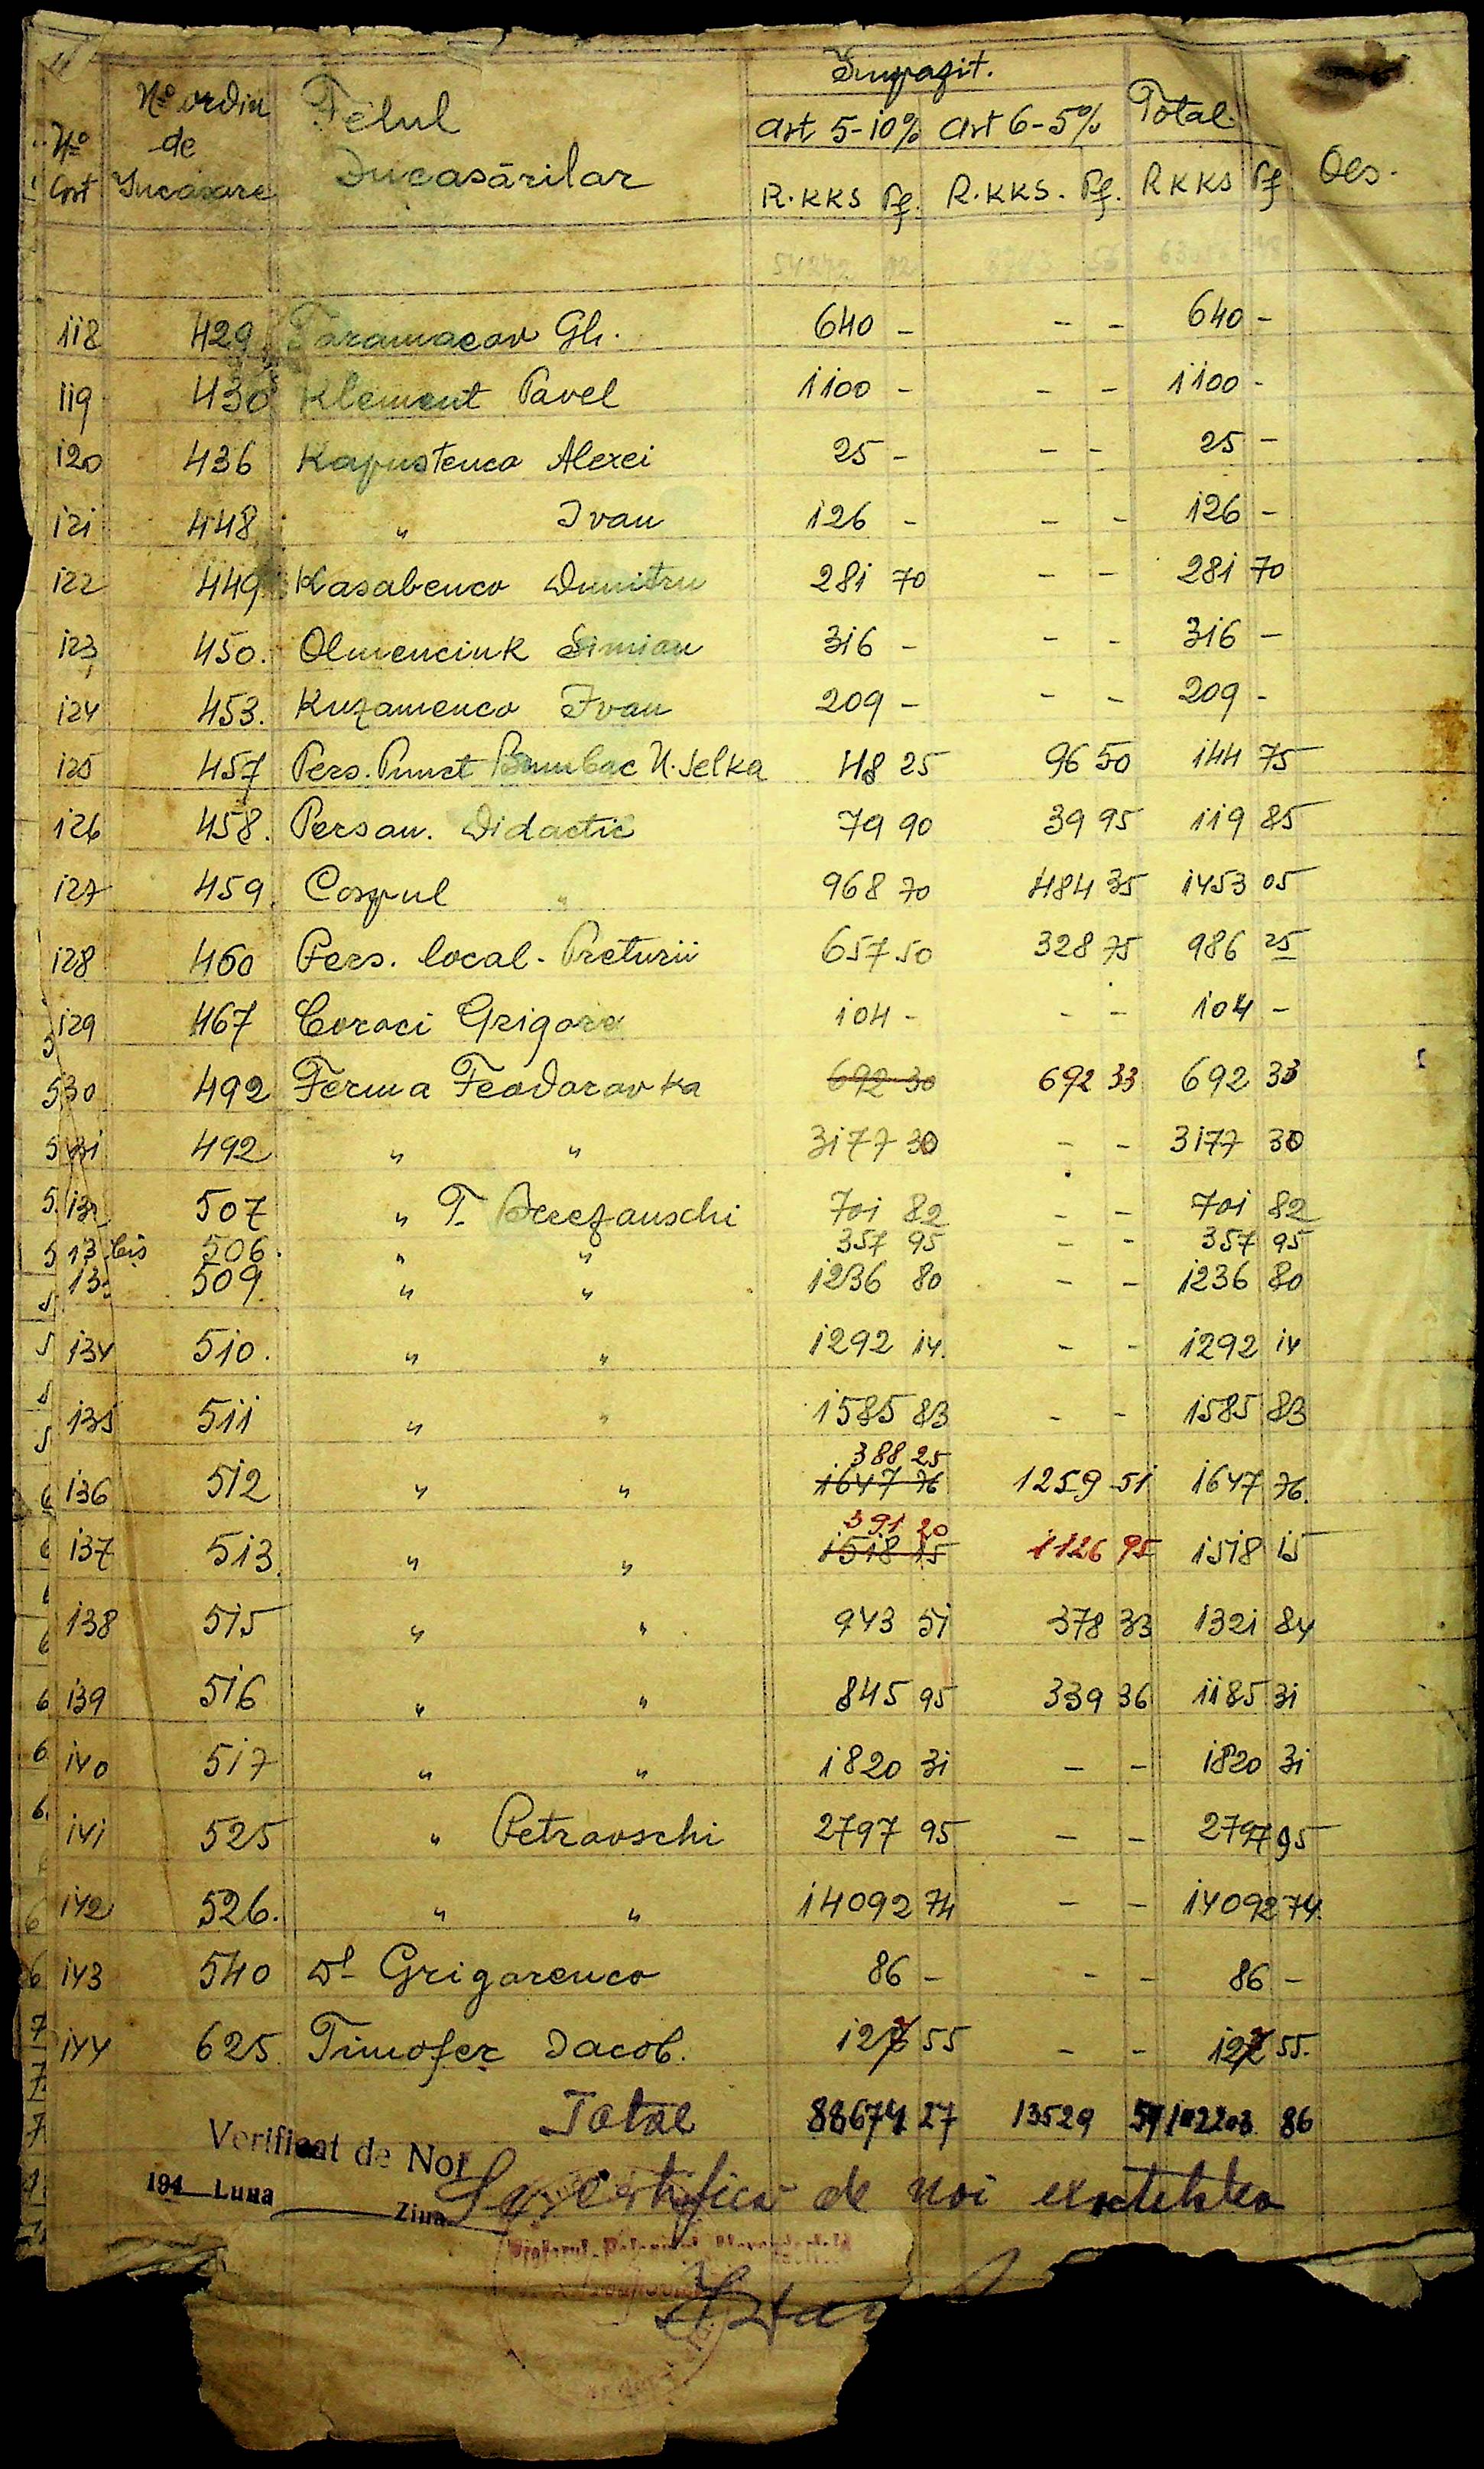 Impozit.
No Crt No ordin de Incasare Felul Incasărilor art 5-10% art 6-5% Total Obs.
R.KKS Pf. R.KKS. Pf. RKKS Pf
118 429 Taramacov Gh. 640 - - - 640 -
119 430 Klement Pavel 1100 - - - 1100 -
120 436 Kapustenco Alexei 25 - - - 25 -
121 448 " Ivan 126 - - - 126 -
122 449 Kasabenco Dumitru 281 70 - - 281 70
123 450. Olmenciuk Simion 316 - - - 316 -
124 453. Kuzamenco Ivan 209 - - - 209 -
125 457 Pers. Punct Bumbac N. Selka 48 25 96 50 144 75
126 458. Person. Didactic 79 90 39 95 119 85
127 459 Corpul " 968 70 484 35 1453 05
128 460 Pers. local. Preturii 657 50 328 75 986 25
129 467 Coroci Grigore 104 - - - 104 -
130 492 Ferma Feodorovka 692 30 692 33 692 33
131 492 " " 3177 30 - - 3177 30
132 507 " T. Berezauschi 701 82 - - 701 82
13 bis 506. " " 357 95 - - 357 95
13 509. " " 1236 80 - - 1236 80
134 510. " " 1292 14. - - 1292 14
135 511 " " 1585 83 - - 1585 83
388 25
136 512 " " 1647 76 1259 51 1647 76.
391 20
137 513. " " 1518 15 1126 95 1518 15
138 515 " " 943 51 378 33 1321 84
139 516 " " 845 95 339 36 1185 31
140 517 " " 1820 31 - - 1820 31
141 525 " Petrovschi 2797 95 - - 2797 95
142 526. " " 14092 74 - - 14092 74.
143 540 Dl Grigorenco 86 - - - 86 -
144 625 Timofee Iacob. 127 55 - - 127 55.
Total 88674 27 13529 59 102203 86
Verificat de Noi
194 Luna Ziua
Se certifica de noi